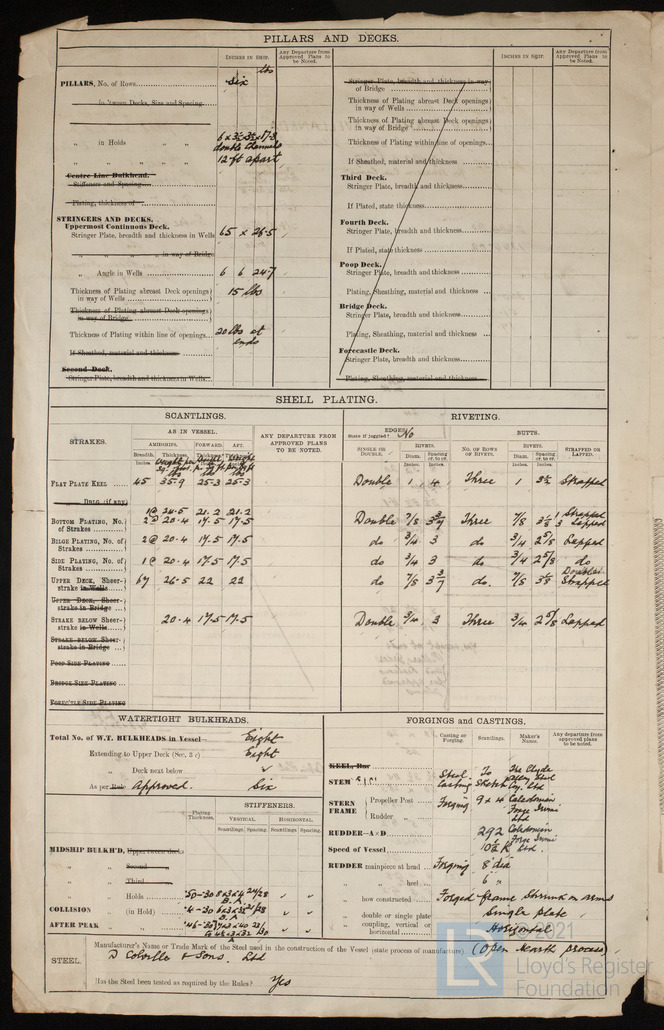 PILLARS AND DECKS.
INCHES IN SHIP.
Any Departure from Approved Plans to be Noted.
INCHES IN SHIP.
Any Departure from Approved Plans to be Noted.
lbs
PILLARS, No. of Rows Six
in 'tween Decks, Size and Spacing
„ in Holds 6 x 3½ x 3½ x 17.8
double channels
„ „ „ „ 12 ft apart
Centre Line Bulkhead.
Stiffeners and Spacing
Plating, thickness of
STRINGERS AND DECKS.
Uppermost Continuous Deck.
Stringer Plate, breadth and thickness in Wells 65 x 26.5
„ „ „ „ in way of Bridge
„ Angle in Wells 6 6 24.7
Thickness of Plating abreast Deck openings) in way of Wells 15 lbs
Thickness of Plating abreast Deck openings) in way of Bridge
Thickness of Plating within line of openings 20 lbs at ends
If Sheathed, material and thickness
Second Deck.
Stringer Plate, breadth and thickness in Wells
Stringer Plate, breadth and thickness in way of Bridge
Thickness of Plating abreast Deck openings) in way of Wells
Thickness of Plating abreast Deck openings) in way of Bridge
Thickness of Plating within line of openings
If Sheathed, material and thickness
Third Deck.
Stringer Plate, breadth and thickness
If Plated, state thickness
Fourth Deck.
Stringer Plate, breadth and thickness
If Plated, state thickness
Poop Deck.
Stringer Plate, breadth and thickness
Plating, Sheathing, material and thickness
Bridge Deck.
Stringer Plate, breadth and thickness
Plating, Sheathing, material and thickness
Forecastle Deck.
Stringer Plate, breadth and thickness
Plating, Sheathing, material and thickness
SHELL PLATING.
SCANTLINGS.
RIVETING.
STRAKES.
AS IN VESSEL.
AMIDSHIPS. FORWARD. AFT.
Breadth. Thickness. Thickness. Thickness.
Inches.
ANY DEPARTURE FROM APPROVED PLANS TO BE NOTED.
EDGES.
State if joggled? No
BUTTS.
SINGLE OR DOUBLE.
RIVETS.
Diam. Spacing cr. to cr.
Inches. Inches.
NO. OF ROWS OF RIVETS.
RIVETS.
Diam. Spacing cr. to cr.
Inches. Inches.
STRAPPED OR LAPPED.
FLAT PLATE KEEL 45 35.9 25.3 25.3 Double 1 4 Three 1 3½ Strapped
DBLG. (if any)
1@ 24.5 21.2 21.2
BOTTOM PLATING, No. of Strakes 2@ 20.4 17.5 17.5 Double 7/8 Three 7/8 3⅛ 1 Strapped 3 Lapped
BILGE PLATING, No. of Strakes 2@ 20.4 17.5 17.5 do 3/4 3 do 3/4 2⅝ Lapped
SIDE PLATING, No. of Strakes 1@ 20.4 17.5 17.5 do 3/4 3 do 3/4 2⅝ do
UPPER DECK, Sheerstrake in Wells 67 26.5 22 22 do 7/8 do. 7/8 3⅛ Double Strapped
UPPER DECK, Sheerstrake in Bridge
STRAKE BELOW SHEERstrake in Wells 20.4 17.5 17.5 Double 3/4 3 Three 3/4 2⅝ Lapped
STRAKE BELOW SHEERstrake in Bridge
POOP SIDE PLATING
BRIDGE SIDE PLATING
FORECSTLE SIDE PLATING
WATERTIGHT BULKHEADS.
Total No. of W.T. BULKHEADS in Vessel— Eight
Extending to Upper Deck (Sec. 3 c) Eight
„ Deck next below
As per Rule Approved. Six
Plating Thickness.
STIFFENERS.
VERTICAL. HORIZONTAL.
Scantlings. Spacing. Scantlings. Spacing.
MIDSHIP BULKH'D, Upper tween decks
„ „ Second
„ „ Third
„ „ Holds
COLLISION „ (in Hold)
AFTER PEAK „ „
FORGINGS and CASTINGS.
Casting or Forging.
Scantlings.
Maker's Name.
Any departure from approved plans to be noted.
KEEL, Bar
STEM Steel Casting To Sketch The Clyde Alloy Steel Coy. Ltd
STERN FRAME { Propeller Post Forging 9 x 4 Caledonian Forge
Rudder „ Ltd
RUDDER—A×D 292 Caledonian Forge
Speed of Vessel 10½ K Ltd.
RUDDER mainpiece at head Forging 8" dia
„ „ heel 6 "
„ how constructed Forged frame Shrunk on arms
„ double or single plate Single plate
„ coupling, vertical or horizontal Horizontal
STEEL.
Manufacturer's Name or Trade Mark of the Steel used in the construction of the Vessel (state process of manufacture). (Open hearth process)
D Colville & Sons. Ltd
Has the Steel been tested as required by the Rules? Yes
2021
LR Lloyd's Register
Foundation